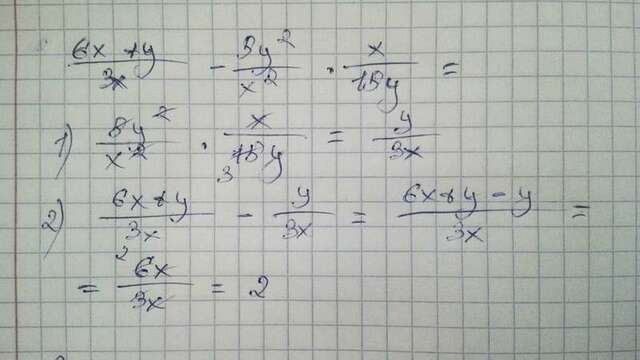 (6x + y)/(3x) - (5y²)/(x²) · x/(15y) =
1) (5y²)/(x²) · x/(15y) = y/(3x)
2) (6x + y)/(3x) - y/(3x) = (6x + y - y)/(3x) =
= (6x)/(3x) = 2